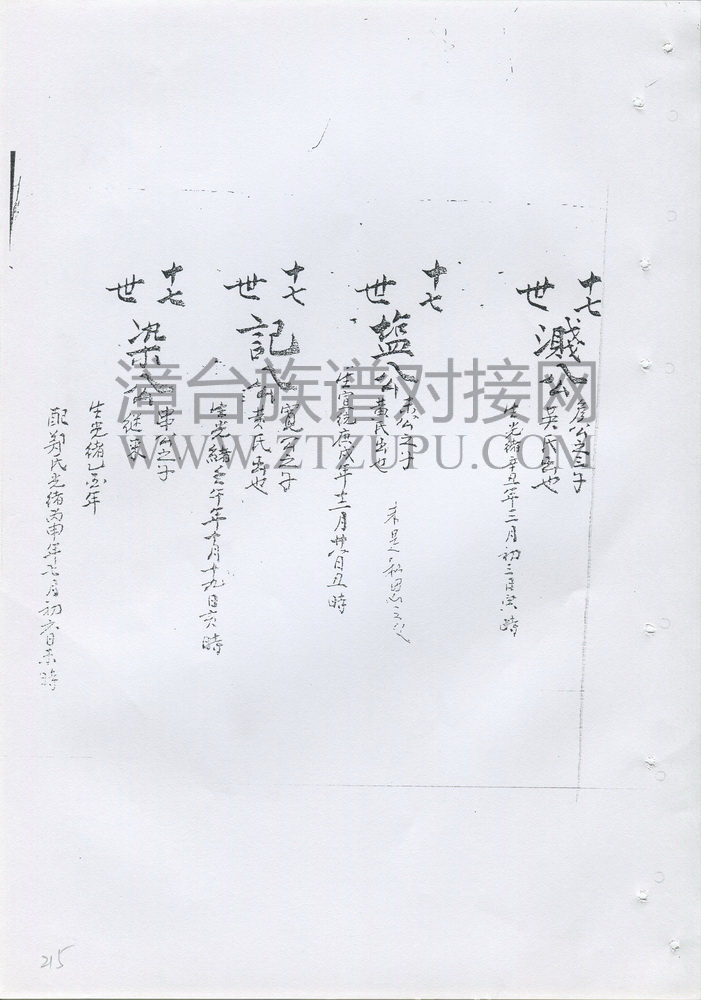 十七
世
濺公
公之子
吳氏出也
生光緒辛丑年三月初三日寅時
十七
世
塩公
公之子
黃氏出也
生宣統庚戌年十二月廿八日丑時
十七
世
記公
寬公之子
黃氏出也
生光緒壬午年十月十九日亥時
十七
世
染公
串公之子
継来
生光緒乙酉年
配郑氏光緒丙申年七月初六日未時
漳台族谱对接网
WWW.ZTZUPU.COM
215